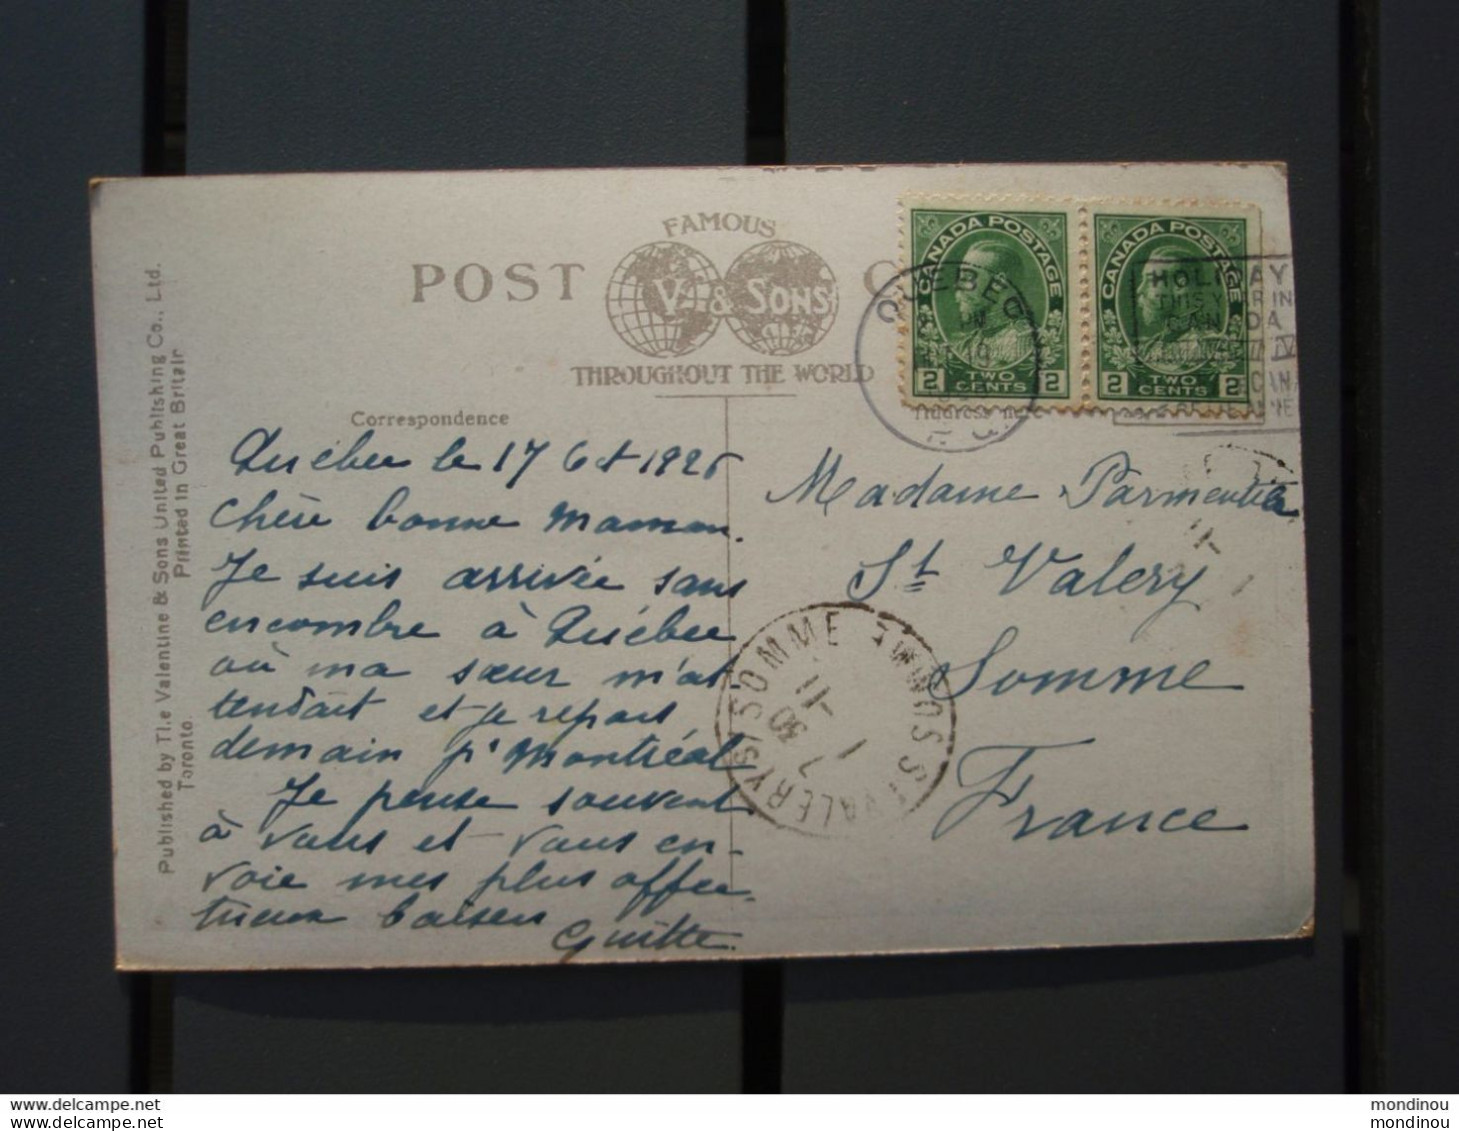 FAMOUS
POST
V. & SONS
THROUGHOUT THE WORLD
CANADA POSTAGE
2 TWO CENTS 2
CANADA POSTAGE
2 TWO CENTS
QUEBEC
HOLIDAY
THIS YEAR IN
CANADA
Correspondence
Address here
Published by The Valentine & Sons United Publishing Co., Ltd.
Toronto.
Printed in Great Britain
Québec le 17 Oct 1926
Chère bonne Maman.
Je suis arrivée sans
encombre à Québec
où ma sœur m'at-
tendait et je repars
demain pr Montréal
Je pense souvent
à vous et vous en-
voie mes plus affec-
tueux baisers
Guitte.
Madame Parmentier
St Valery
Somme
France
ST VALERY S/ SOMME SOMME
www.delcampe.net
www.delcampe.net
mondinou
mondinou